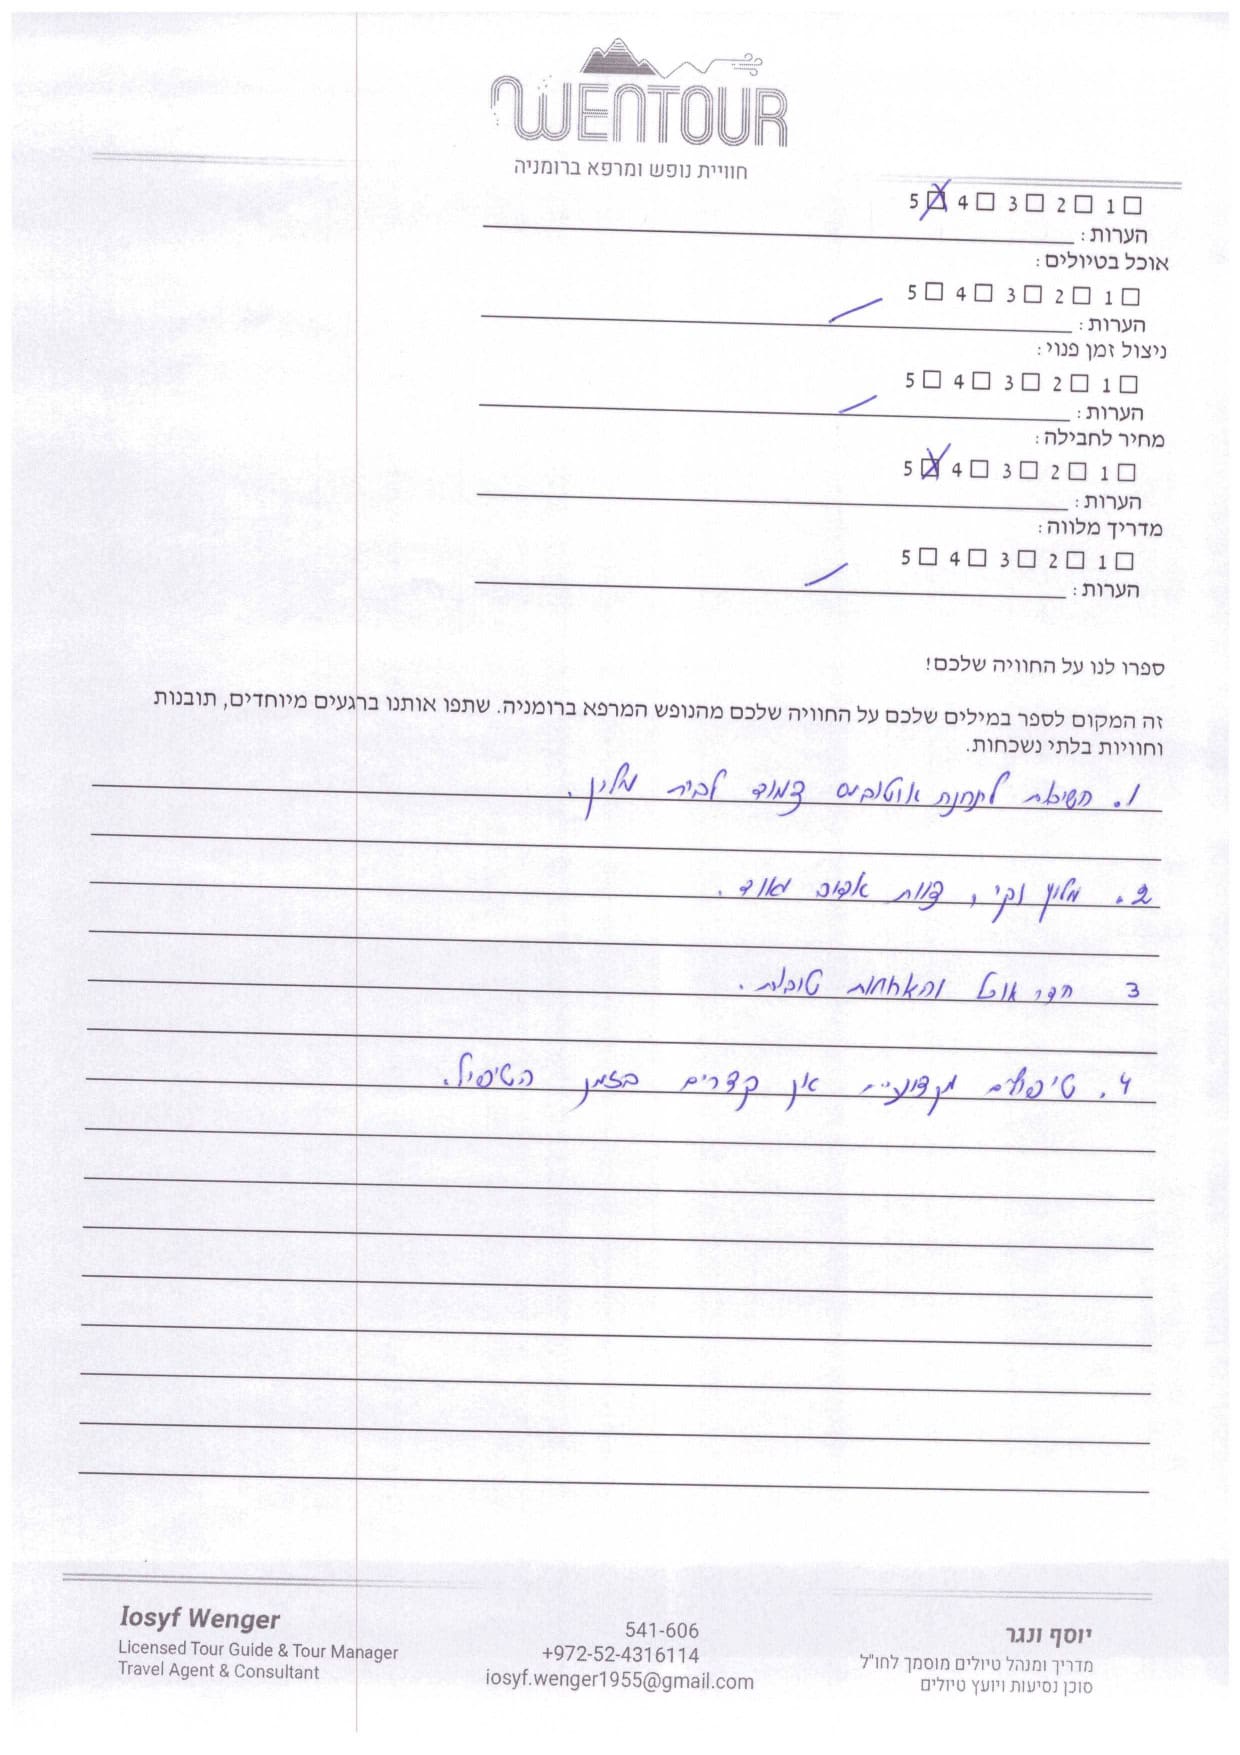 WENTOUR
חוויית נופש ומרפא ברומניה
1 2 3 4 5
הערות:
אוכל בטיולים:
1 2 3 4 5
הערות:
ניצול זמן פנוי:
1 2 3 4 5
הערות:
מחיר לחבילה:
1 2 3 4 5
הערות:
מדריך מלווה:
1 2 3 4 5
הערות:
ספרו לנו על החוויה שלכם!
זה המקום לספר במילים שלכם על החוויה שלכם מהנופש המרפא ברומניה. שתפו אותנו ברגעים מיוחדים, תובנות
וחוויות בלתי נשכחות.
1. לתחנת אוטובוס צמוד לבית מלון.
2. מלון נקי, צוות אדיב מאוד.
3 חדר אוכל והארוחות טובות.
4. טיפולים קצרים בזמן הטיפול.
Iosyf Wenger
Licensed Tour Guide & Tour Manager
Travel Agent & Consultant
541-606
+972-52-4316114
iosyf.wenger1955@gmail.com
יוסף ונגר
מדריך ומנהל טיולים מוסמך לחו"ל
סוכן נסיעות ויועץ טיולים